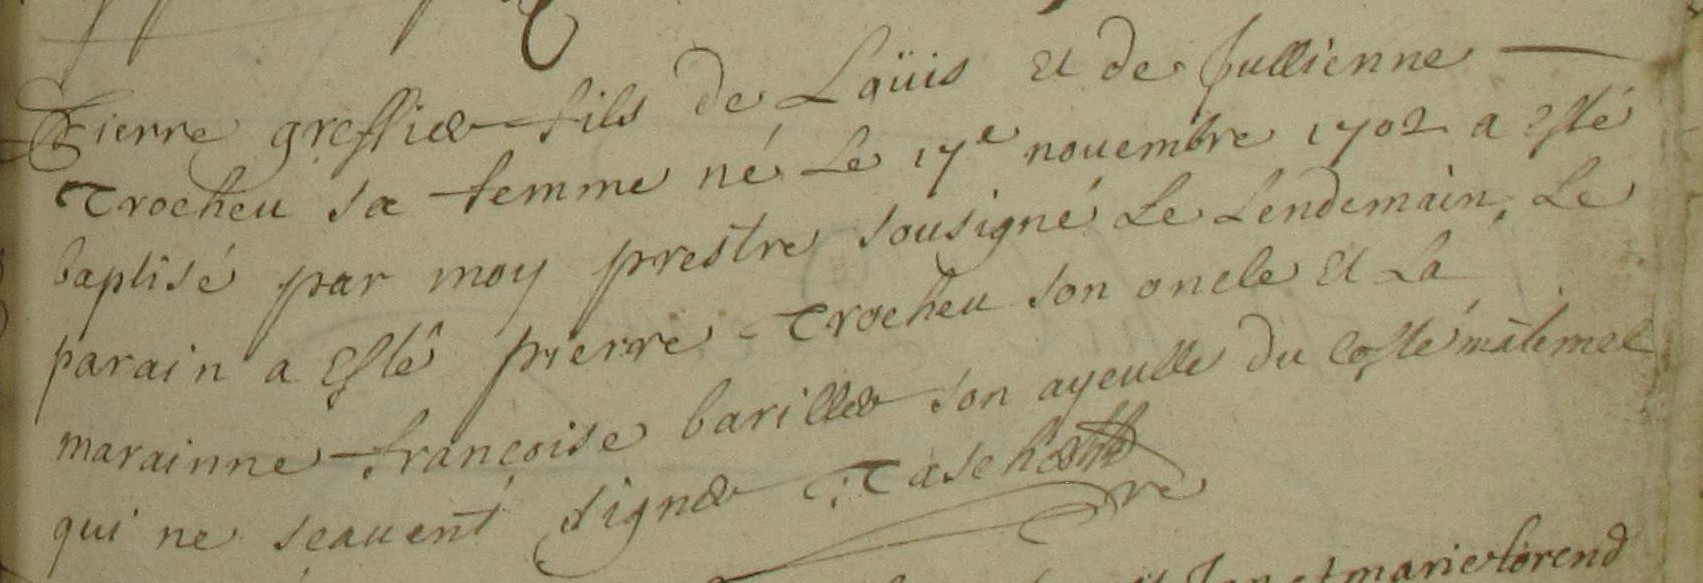 Pierre greffier fils de Loüis Et de Jullienne
Trocheu sa femme né Le 17e novembre 1702 a Esté
baptisé par moy prestre sousigné Le Lendemain, Le
parain a Esté pierre Trocheu son oncle Et La
marainne françoise bariller son ayeulle du costé maternel
qui ne sçauent signer
et marie lorend